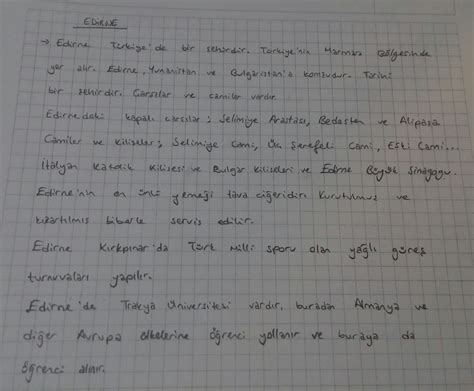 EDİRNE
→ Edirne Türkiye'de bir şehirdir. Türkiye'nin Marmara Bölgesinde
yer alır. Edirne, Yunanistan ve Bulgaristan'a komşudur. Tarihi
bir şehirdir. Çarşılar ve camiler vardır.
Edirne'deki kapalı çarşılar; Selimiye Arastası, Bedesten ve Alipaşa
Camiler ve kiliseler; Selimiye Cami, Üç Şerefeli Cami, Eski Cami...
İtalyan Katolik Kilisesi ve Bulgar Kiliseleri ve Edirne Büyük Sinagogu.
Edirne'nin en ünlü yemeği tava ciğeridir. Kurutulmuş ve
kızartılmış biberle servis edilir.
Edirne Kırkpınar'da Türk Milli sporu olan yağlı güreş
turnuvaları yapılır.
Edirne'de Trakya Üniversitesi vardır. buradan Almanya ve
diğer Avrupa ülkelerine öğrenci yollanır ve buraya da
öğrenci alınır.